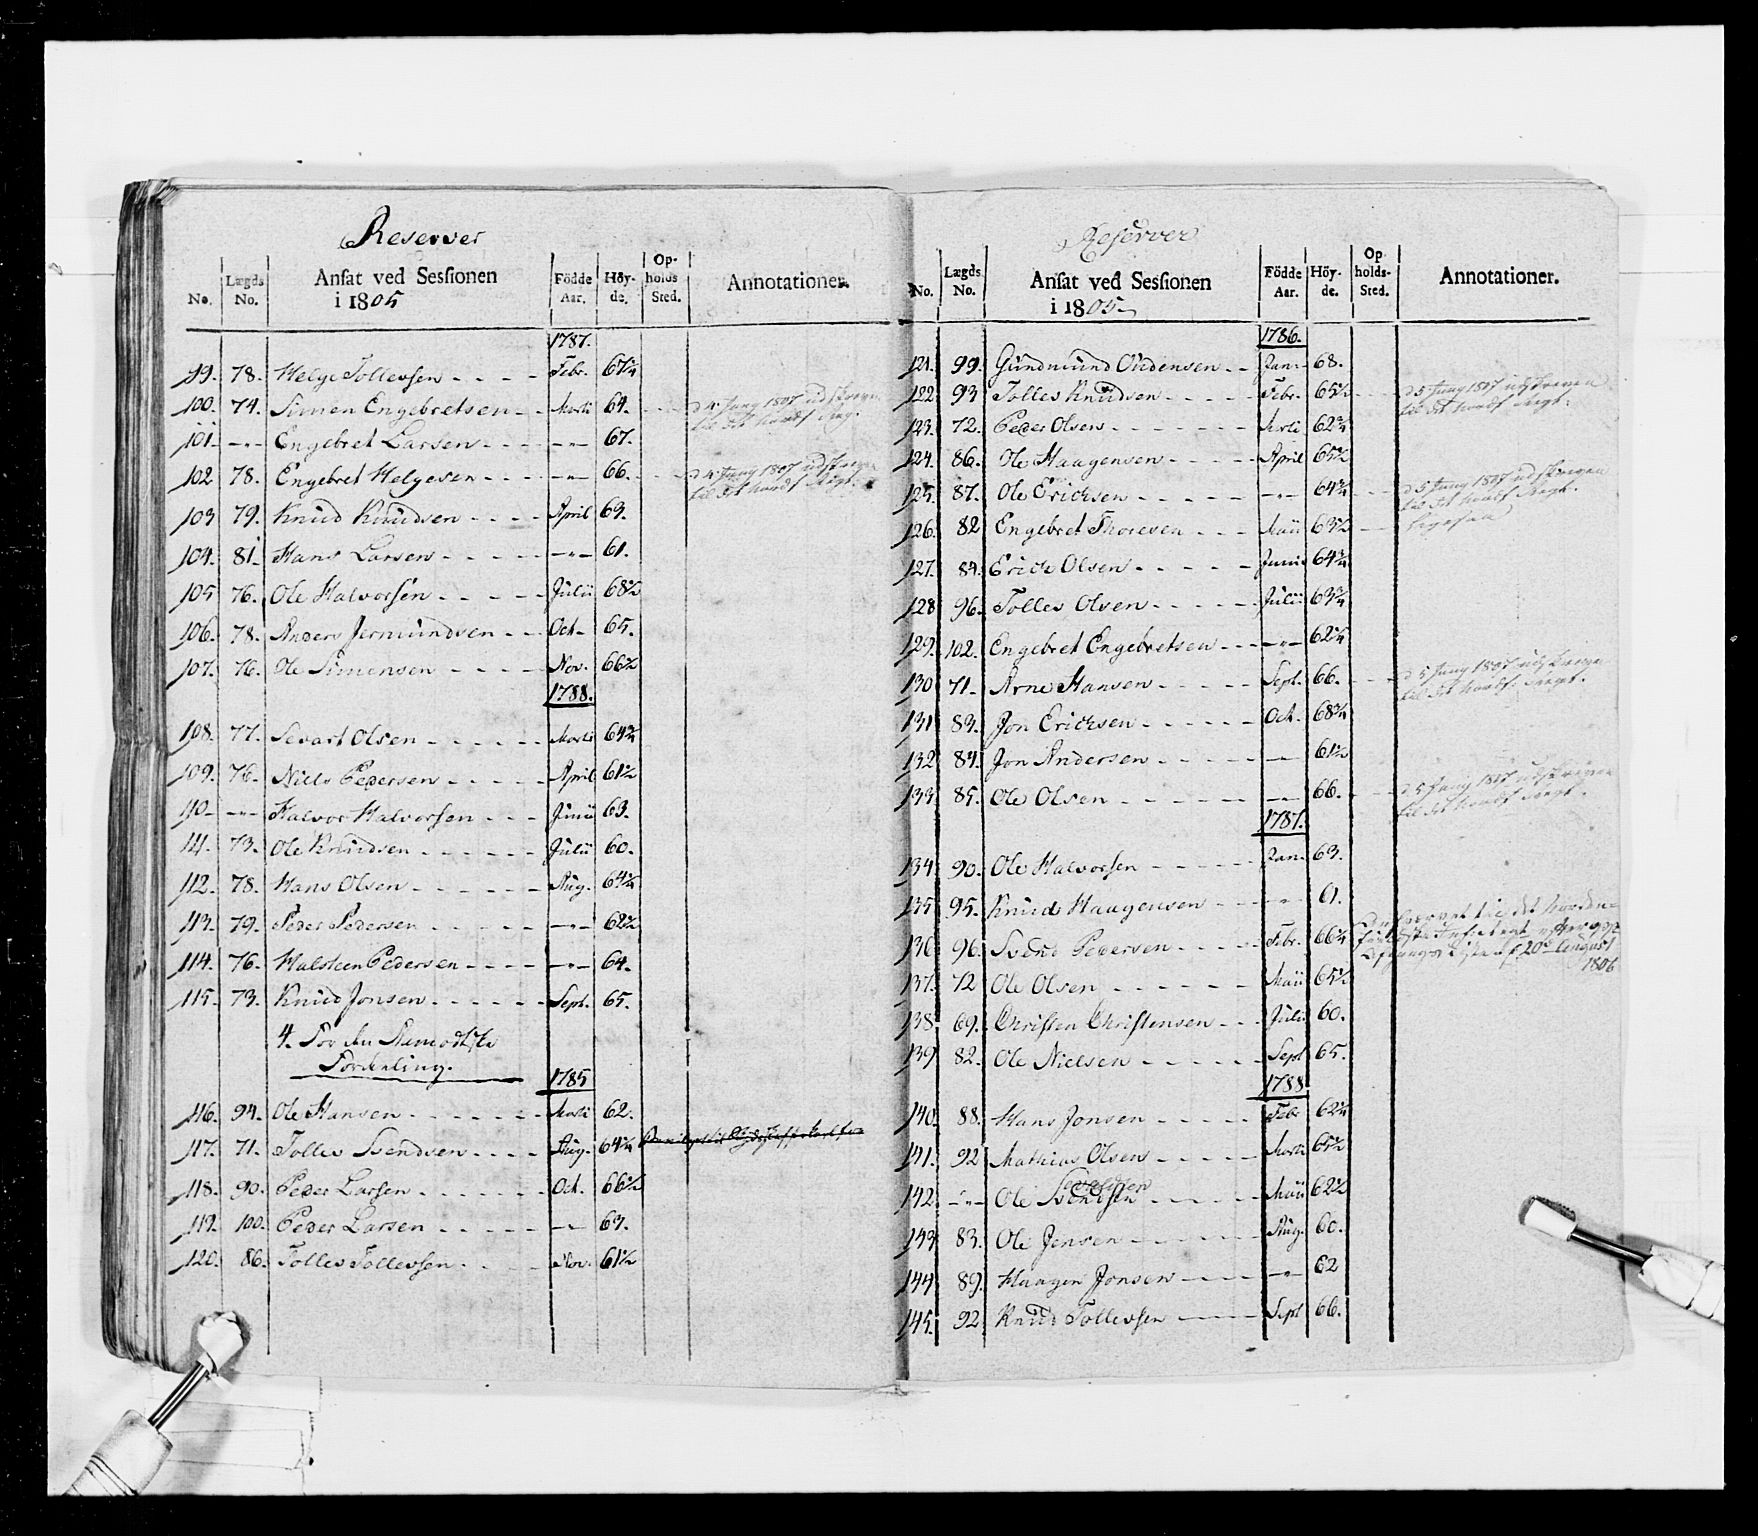 Reserver
No. Lægds No. Ansat ved Sessionen i 1805 Födde Aar. Höyde. Opholds Sted. Annotationer.
1787.
99. 78. Helge Tollevsen Febr. 67¼
100. 74. Simen Engebretsen Marti 64. d 4 Juny 1807 udskreven
til det nordf Regt.
101. -"- Engebret Larsen -"- 67.
102 78. Engebret Helgesen -"- 66. d 4 Juny 1807 udskreven
til det nordf Regt.
103 79. Knud Knudsen April 63.
104. 81. Hans Larsen -"- 61.
105 76. Ole Halvorsen Julii 68½
106. 78. Anders Jermundsen Oct. 65.
107. 76. Ole Simensen Nov. 66½
1788.
108. 77. Sevart Olsen Marti 64¾
109. 76. Niels Pedersen April 61½
110. -"- Halvor Halvorsen Junii 63.
111. 73. Ole Knudsen Julii 60.
112. 78. Hans Olsen Aug. 64¼
113. 79. Peder Pedersen -"- 62½
114. 76. Halsteen Pedersen -"- 64.
115. 73. Knud Jonsen Sept. 65.
4. For den
Fordeling.
1785
116. 94. Ole Hansen Marti 62.
117. 71. Tolles Svendsen Aug. 64¼
118. 90. Peder Larsen Oct. 66½
119. 100. Peder Larsen -"- 63.
120. 86. Tolles Tollevsen Nov. 61½
Reserver
No. Lægds No. Ansat ved Sessionen i 1805 Födde Aar. Höyde. Opholds-Sted. Annotationer.
1786.
121. 99. Gundmund Andensen Jan. 68.
122 93 Tolles Knudsen Febr. 65½ d 5 Juny 1807 udskreven
til det nordf Regt.
123. 72. Peder Olsen Marti 62¾
124. 86. Ole Haagensen April 65½
125. 87. Ole Ericksen -"- 64¾ d 5 Juny 1807 udskreven
til det nordf Regt.
126. 82 Engebret Thoresen Maii 63½ ligesaa
127. 84. Erick Olsen Junii 64¾
128 96. Tolles Olsen Julii 63¾
129. 102. Engebret Engebretsen -"- 62¼
130 71. Arne Hansen Sept. 66. d 5 Juny 1807 udskreven
til det nordf. Regt.
131 83. Jon Ericksen Oct. 68¾
132 84. Jon Andersen -"- 61½
133 85. Ole Olsen -"- 66. d 5 Juny 1807 udskreven
til det nordf Regt.
1787.
134 90. Ole Halvorsen Jan. 63.
135 95. Knud Haagensen -"- 61.
136 96. Svend Pedersen Febr. 66¼ til det Norden-
fieldske Infanterie
Liste af 20de August
1806
137. 72 Ole Olsen Maii 65½
138 69. Christen Christensen Julii 60.
139 82. Ole Nielsen Sept 65.
1788
140. 88. Hans Jonsen Febr 62¼
141. 92 Mathias Olsen Marti 65½
142. -"- Ole Svendsen Maii 62½
143 83. Ole Jensen Aug. 60.
144 89. Haagen Jonsen -"- 62
145. 92 Knud Tollevsen Sept 66.